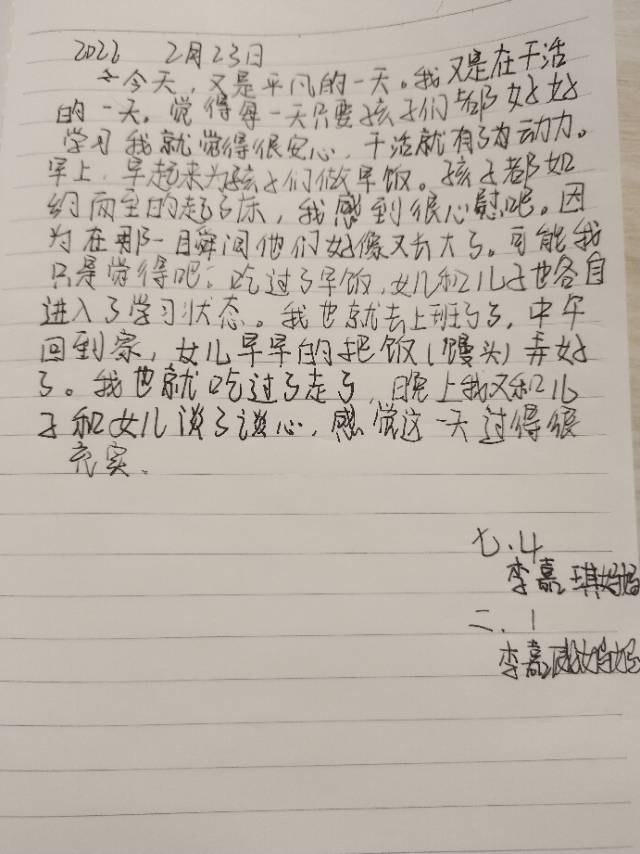 2022 2月23日
今天，又是平凡的一天。我又是在干活
的一天。觉得每一天只要孩子们都好好
学习我就觉得很安心，干活就有了动力。
早上，早起来为孩子们做早饭。孩子都如
约而至的起了床，我感到很心慰吧。因
为在那一目瞬间他们好像又长大了。可能我
只是觉得吧；吃过了早饭，女儿和儿子也各自
进入了学习状态。我也就去上班了，中午
回到家，女儿早早的把饭（馒头）弄好
了。我也就吃过了走了，晚上我又和儿
子和女儿谈了谈心，感觉这一天过得很
充实.
七.4
李嘉琪妈妈
二.1
李嘉 妈妈